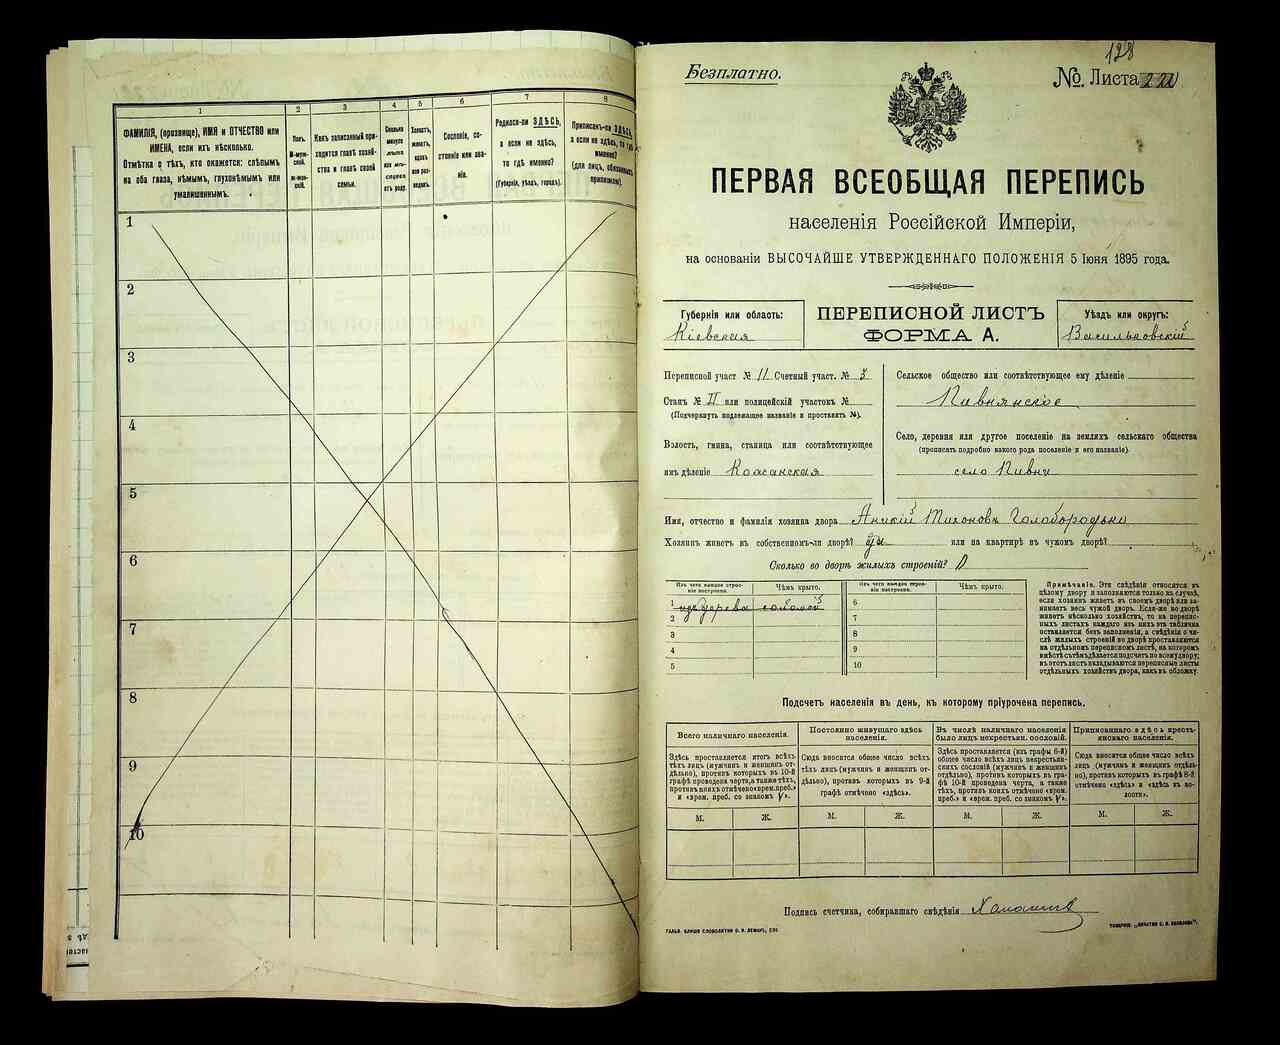 1
2
3
4
5
6
7
8
ФАМИЛІЯ, (прозвище), ИМЯ и ОТЧЕСТВО или
ИМЕНА, если ихъ нѣсколько.
Отмѣтка о тѣхъ, кто окажется: слѣпымъ
на оба глаза, нѣмымъ, глухонѣмымъ или
умалишеннымъ.
Полъ.
М-муж-
ской.
ж-жен-
скій.
Какъ записанный при-
ходится главѣ хозяй-
ства и главѣ своей
семьи.
Сколько
минуло
лѣтъ
или мѣ-
сяцевъ
отъ роду.
Холостъ,
женатъ,
вдовъ
или раз-
веденъ.
Сословіе, со-
стояніе или зва-
ніе.
Родился-ли ЗДѢСЬ,
а если не здѣсь,
то гдѣ именно?
(Губернія, уѣздъ, городъ).
Приписанъ-ли ЗДѢСЬ,
а если не здѣсь, то гдѣ
именно?
(для лицъ, обязанныхъ
припискою).
1
2
3
4
5
6
7
8
9
10
128
Безплатно.
№. Листа
ПЕРВАЯ ВСЕОБЩАЯ ПЕРЕПИСЬ
населенія Россійской Имперіи,
на основаніи ВЫСОЧАЙШЕ УТВЕРЖДЕННАГО ПОЛОЖЕНІЯ 5 Іюня 1895 года.
Губернія или область:
Кіевская
ПЕРЕПИСНОЙ ЛИСТЪ
ФОРМА А.
Уѣздъ или округъ:
Васильковскій
Переписной участ № 11 Счетный участ. № 3
Станъ № II или полицейскій участокъ №
(Подчеркнуть подлежащее названіе и проставить №).
Волость, гмина, станица или соотвѣтствующее
имъ дѣленіе Кожанская
Сельское общество или соотвѣтствующее ему дѣленіе
Пивнянское
Село, деревня или другое поселеніе на земляхъ сельскаго общества
(прописать подробно какого рода поселеніе и его названіе).
село Пивни
Имя, отчество и фамилія хозяина двора Аникій Тихоновъ Голобородько
Хозяинъ живетъ въ собственномъ-ли дворѣ? да или на квартирѣ въ чужомъ дворѣ?
Сколько во дворѣ жилыхъ строеній?
Изъ чего каждое строе-
ніе построено.
Чѣмъ крыто.
Изъ чего каждое строе-
ніе построено.
Чѣмъ крыто.
1 изъ дерева соломой
2
3
4
5
6
7
8
9
10
Примѣчаніе. Эти свѣдѣнія относятся къ
цѣлому двору и заполняются только въ случаѣ,
если хозяинъ живетъ въ своемъ дворѣ или за-
нимаетъ весь чужой дворъ. Если-же во дворѣ
живетъ нѣсколько хозяйствъ, то на перепис-
ныхъ листахъ каждаго изъ нихъ эта табличка
оставляется безъ заполненія, а свѣдѣнія о чи-
слѣ жилыхъ строеній во дворѣ проставляются
на отдѣльномъ переписномъ листѣ, на которомъ
вмѣстѣ съ тѣмъ дѣлается подсчетъ по всему двору;
въ этотъ листъ вкладываются переписные листы
отдѣльныхъ хозяйствъ двора, какъ въ обложку.
Подсчетъ населенія въ день, къ которому пріурочена перепись.
Всего наличнаго населенія.
Постоянно живущаго здѣсь
населенія.
Въ числѣ наличнаго населенія
было лицъ некрестьян. сословій.
Приписаннаго здѣсь кресть-
янскаго населенія.
Здѣсь проставляется итогъ всѣхъ
тѣхъ лицъ (мужчинъ и женщинъ от-
дѣльно), противъ которыхъ въ 10-й
графѣ проведена черта, а также тѣхъ,
противъ коихъ отмѣчено «врем. преб.»
и «врем. преб. со знакомъ V».
Сюда вносится общее число всѣхъ
тѣхъ лицъ (мужчинъ и женщинъ от-
дѣльно), противъ которыхъ въ 9-й
графѣ отмѣчено «здѣсь».
Здѣсь проставляется (изъ графы 6-й)
общее число всѣхъ лицъ некрестьян-
скихъ сословій (мужчинъ и женщинъ
отдѣльно), противъ которыхъ въ гра-
фѣ 10-й проведена черта, а также
тѣхъ, противъ коихъ отмѣчено «врем.
преб.» и «врем. преб. со знакомъ V».
Сюда вносится общее число всѣхъ
лицъ (мужчинъ и женщинъ отдѣль-
но), противъ которыхъ въ графѣ 8-й
отмѣчено «здѣсь» и «здѣсь въ во-
лости».
М.
Ж.
М.
Ж.
М.
Ж.
М.
Ж.
Подпись счетчика, собиравшаго свѣдѣнія